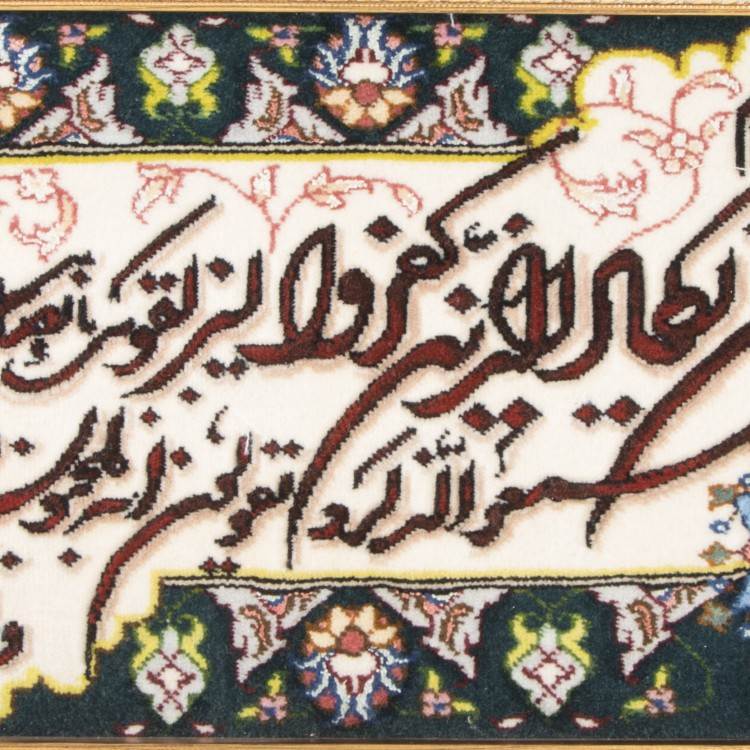 يكاد الذين كفروا ليزلقونك بأبصار
سمعوا الذكر و يقولون إنه لمجنون